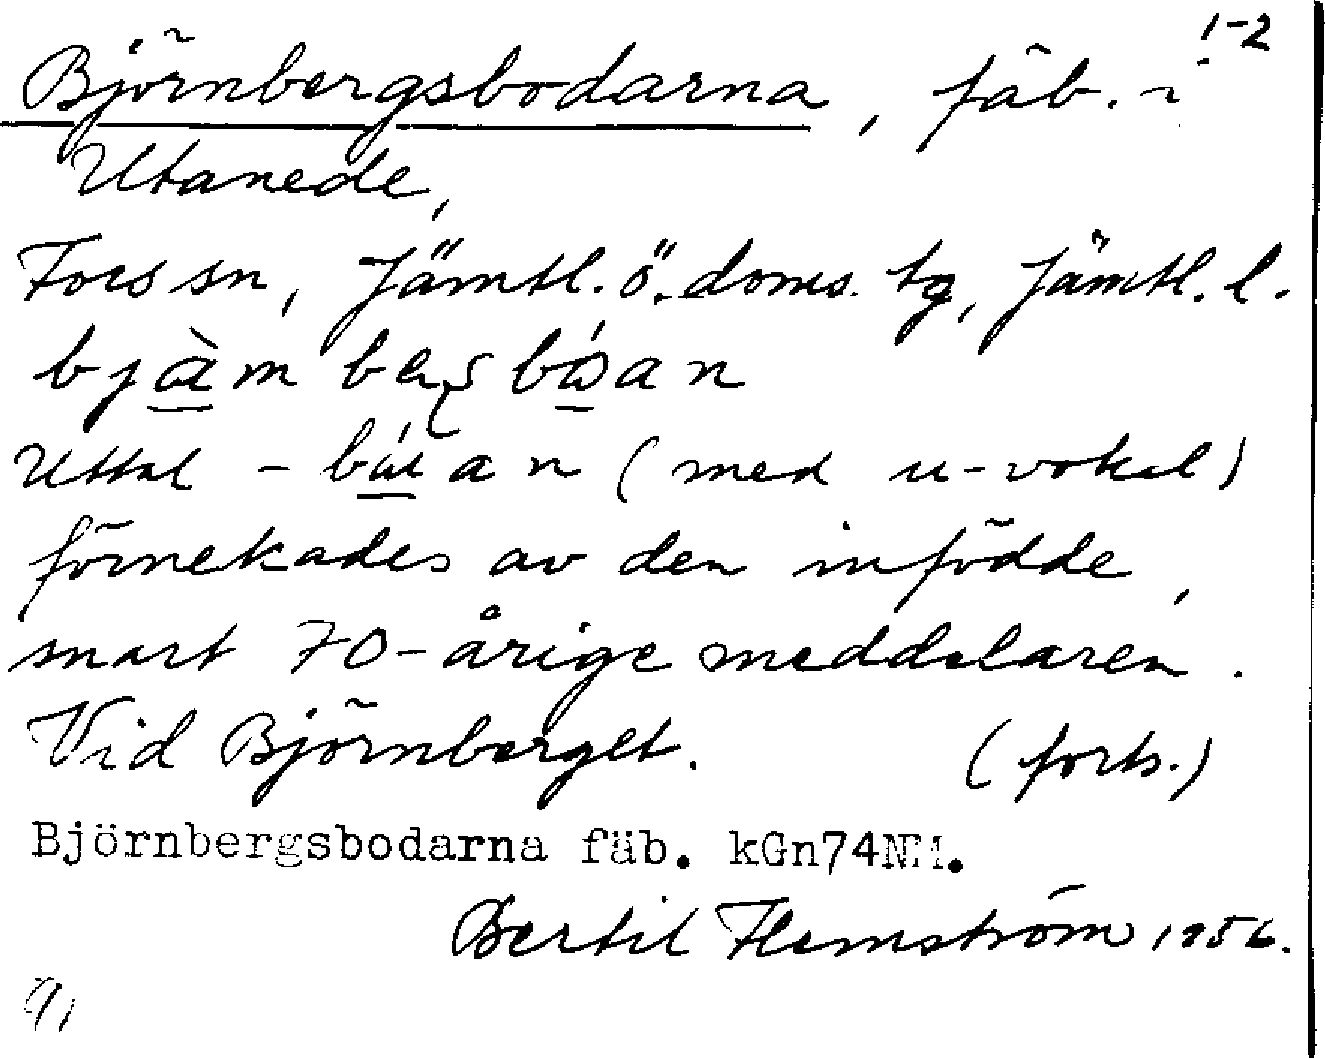 1-2
Björnbergsbodarna, fäb. i
Utanede,
Fors sn, Jämtl. ö. doms. tg, Jämtl. l.
Uttal - (med u-vokal)
förnekades av den infödde,
snart 70-årige meddelaren.
Vid Björnberget. (forts.)
Björnbergsbodarna fäb. kGn74NM.
Bertil Flemström 1956.